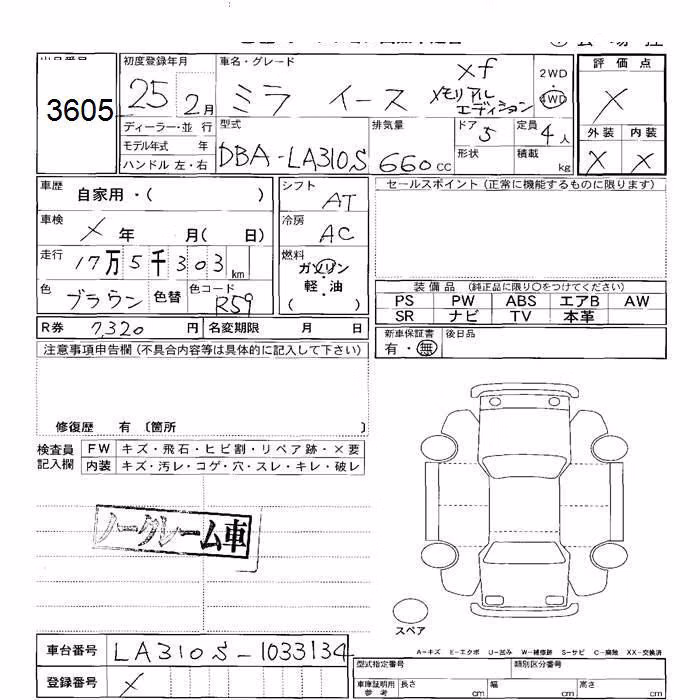 出品番号
3605
初度登録年月
25 2月
ディーラー・並 行
モデル年式 年
ハンドル 左・右
車名・グレード
ミラ イース xf メモリアルエディション
2WD
4WD
型式
DBA-LA310S
排気量
660 CC
ドア 5
形状
定員 4 人
積載 kg
評 価 点
X
外 装 内 装
X X
車歴 自家用・( )
車検 X 年 月( 日)
走行 17万5千303km
色 ブラウン 色替 色コード R59
シフト AT
冷房 AC
燃料 ガソリン
軽・油
( )
R券 7,320 円 名変期限 月 日
セールスポイント (正常に機能するものに限ります)
装 備 品 (純正品に限り○をつけてください)
PS PW ABS エアB AW
SR ナビ TV 本革
新車保証書 後日品
有・無
注意事項申告欄(不具合内容等は具体的に記入して下さい)
修復歴 有 〔箇所 〕
検査員記入欄
FW キズ・飛石・ヒビ割・リペア跡・×要
内装 キズ・汚レ・コゲ・穴・スレ・キレ・破レ
ノークレーム車
スペア
A-キズ E-エクボ U-凹み W-補修跡 S-サビ C-腐蝕 XX-交換済
車台番号 LA310S-1033134
登録番号 X
型式指定番号 類別区分番号
車庫証明用参考 長さ cm 幅 cm 高さ cm